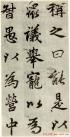 稱之曰能是以
眾議舉寵以為
督愚以為營中